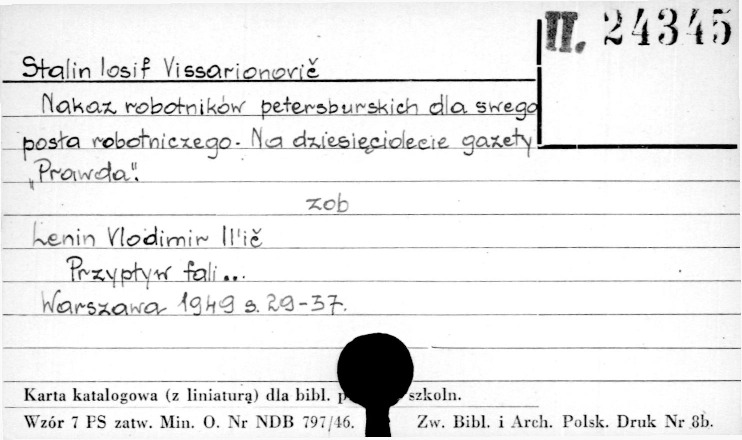 II. 24345
Stalin Iosif Vissarionovič
Nakaz robotników petersburskich dla swego
posła robotniczego. Na dziesięciolecie gazety
„Prawda".
zob
Lenin Vlodimir Il'ič
Przypływ fali...
Warszawa 1949 s. 29-37.
Karta katalogowa (z liniaturą) dla bibl. szkoln.
Wzór 7 PS zatw. Min. O. Nr NDB 797/46. Zw. Bibl. i Arch. Polsk. Druk Nr 8b.